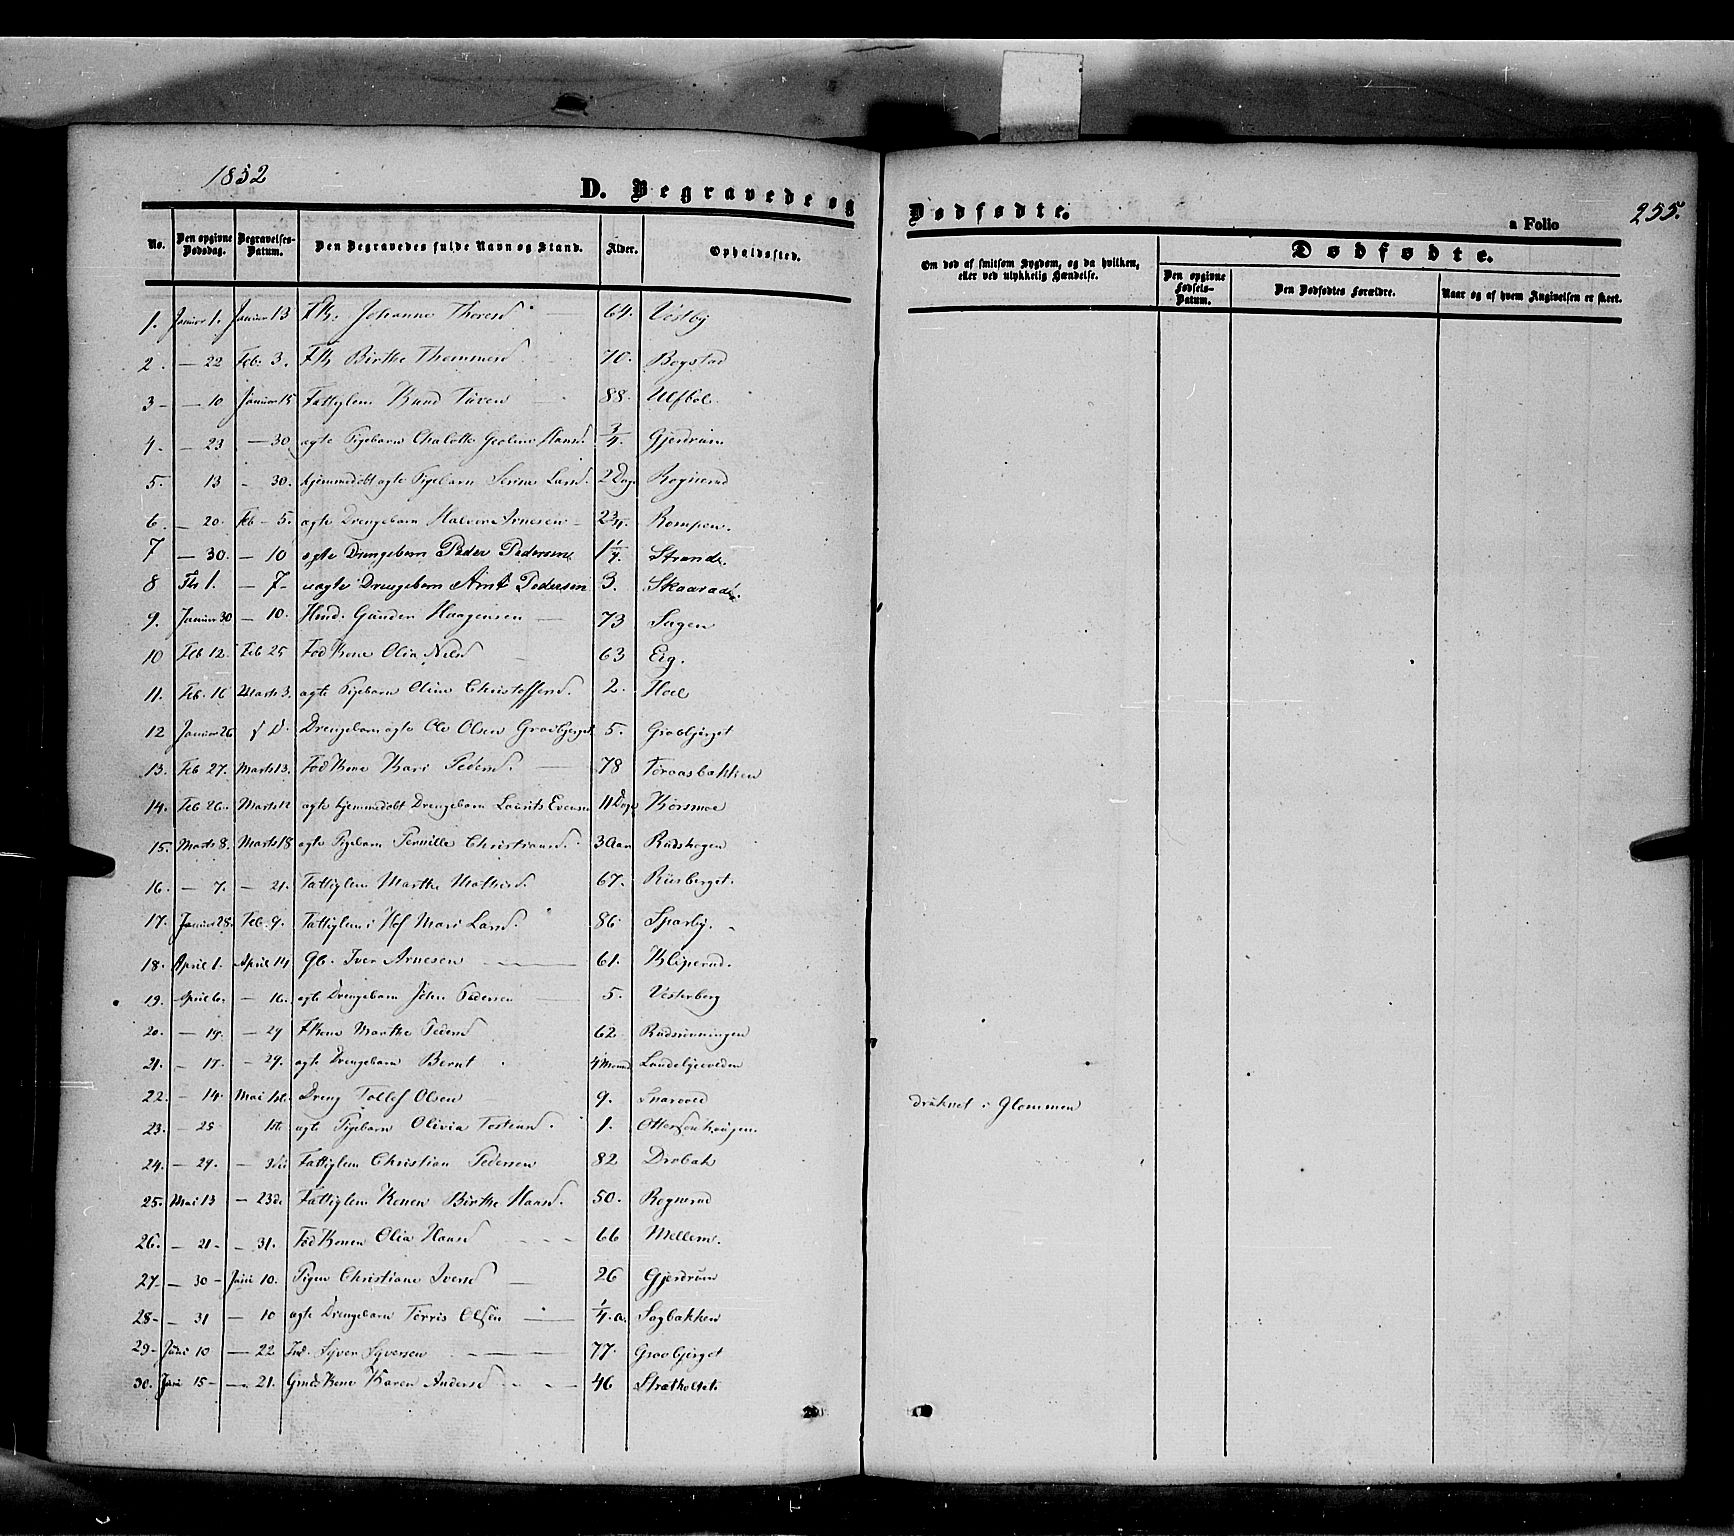 1852
D. Begravede og Dødfødte.
a Folio 255.
No. | Den opgivne Dødsdag. | Begravelses-Datum. | Den Begravedes fulde Navn og Stand. | Alder. | Opholdssted. | Om død af smitsom Sygdom, og da hvilken, eller ved ulykkelig Hændelse. | Dødfødte.
Den opgivne Fødsels-Datum. | Den Dødfødtes Forældre. | Naar og af hvem Angivelsen er skeet.
1. Januar 1. Januar 13 Johanne Thoresd 64. Vestby
2. — 22 Feb. 3. Birthe Thommesd 70. Bogstad
3 — 10 Januar 15 Fattiglem Knud Iversen 88. Ulfbøl
4. — 23 — 30. ægte Pigebarn Chalotte Geoline Hansd. 3/4. Gjerdrum
5. 13 — 30. hjemmedøbt ægte Pigebarn Serine Larsd. 2 Dage Rognerud
6. — 20. Feb — 5. ægte Drengebarn Halvor Arnesen 2 3/4. Rompen.
7 — 30. — 10 ægte Drengebarn Peder Pedersen 1 1/4. Strande.
8 Feb 1. — 7 — uægte Drengebarn Arnt Pedersen 3. Skaaradee.
9. Januar 30 — 10. Hmd. Gunder Haagensen — 73 Sagen
10 Feb 12. Feb 25 Fød Kone Olia Nilsd 63 Eig.
11. Feb. 16 Marts 3. ægte Pigebarn Oline Christoffersd. 2. Hoel
12 Januar 26 f D. Drengebarn ægte Ole Olsen Gravbjerget 5. Gravbjerget
13. Feb 27. Marts 13. Fød Kone Kari Pedersd. — 78 Foraasbakken
14. Feb 26. Marts 12 ægte hjemmedøbt Drengebarn Laurits Evensen 11 Dage Korsmoe
15. Marts 8. Marts 18 ægte Pigebarn Pernille Christiansd. 3 Aar Rudshagen
16. — 7. — 21. Fattiglem Marthe Mathisd. 67. Riisberget.
17. Januar 28. Feb. 9. Fattiglem i Hof Mari Larsd. 86. Sparby.
18. April 1. April 14 Gb. Iver Arnesen 61. Kliperud.
19. April 6. — 16. ægte Drengebarn Johan Pedersen 5. Vesterberg
20. — 19. — 29 F Kone Marthe Pedersd 62. Rudsrønningen
21. — 17. — 29. ægte Drengebarn Bernt 4 Maaned
22. — 14. Mai 1ste. Dreng Tollef Olsen 9. Snareved druknet i Glommen
23. — 25 1ste ægte Pigebarn Olivia Tostensd. 1. Ottersønhaugen.
24. — 29. — 3die Fattiglem Christian Pedersen 82 Drøbak
25. Mai 13 — 23de Fattiglem Konen Birthe Hansd. 50. Rognerud
26. — 21 — — 31. Fød Konen Olia Hansd 66 Mellem.
27 — — 30 — Juni 10. Pigen Christiane Iversd 26 Gjerdrum
28 — — 31 — 10 ægte Drengebarn Torris Olsen 1/4 a. Sagbakken
29 — Juni 10 — 22 Ind. Syver Syversen 77. Gravbjerget
30. Juni 15 — — 21. Gmds Kone Karen Andersd 46 Strætkoltet.